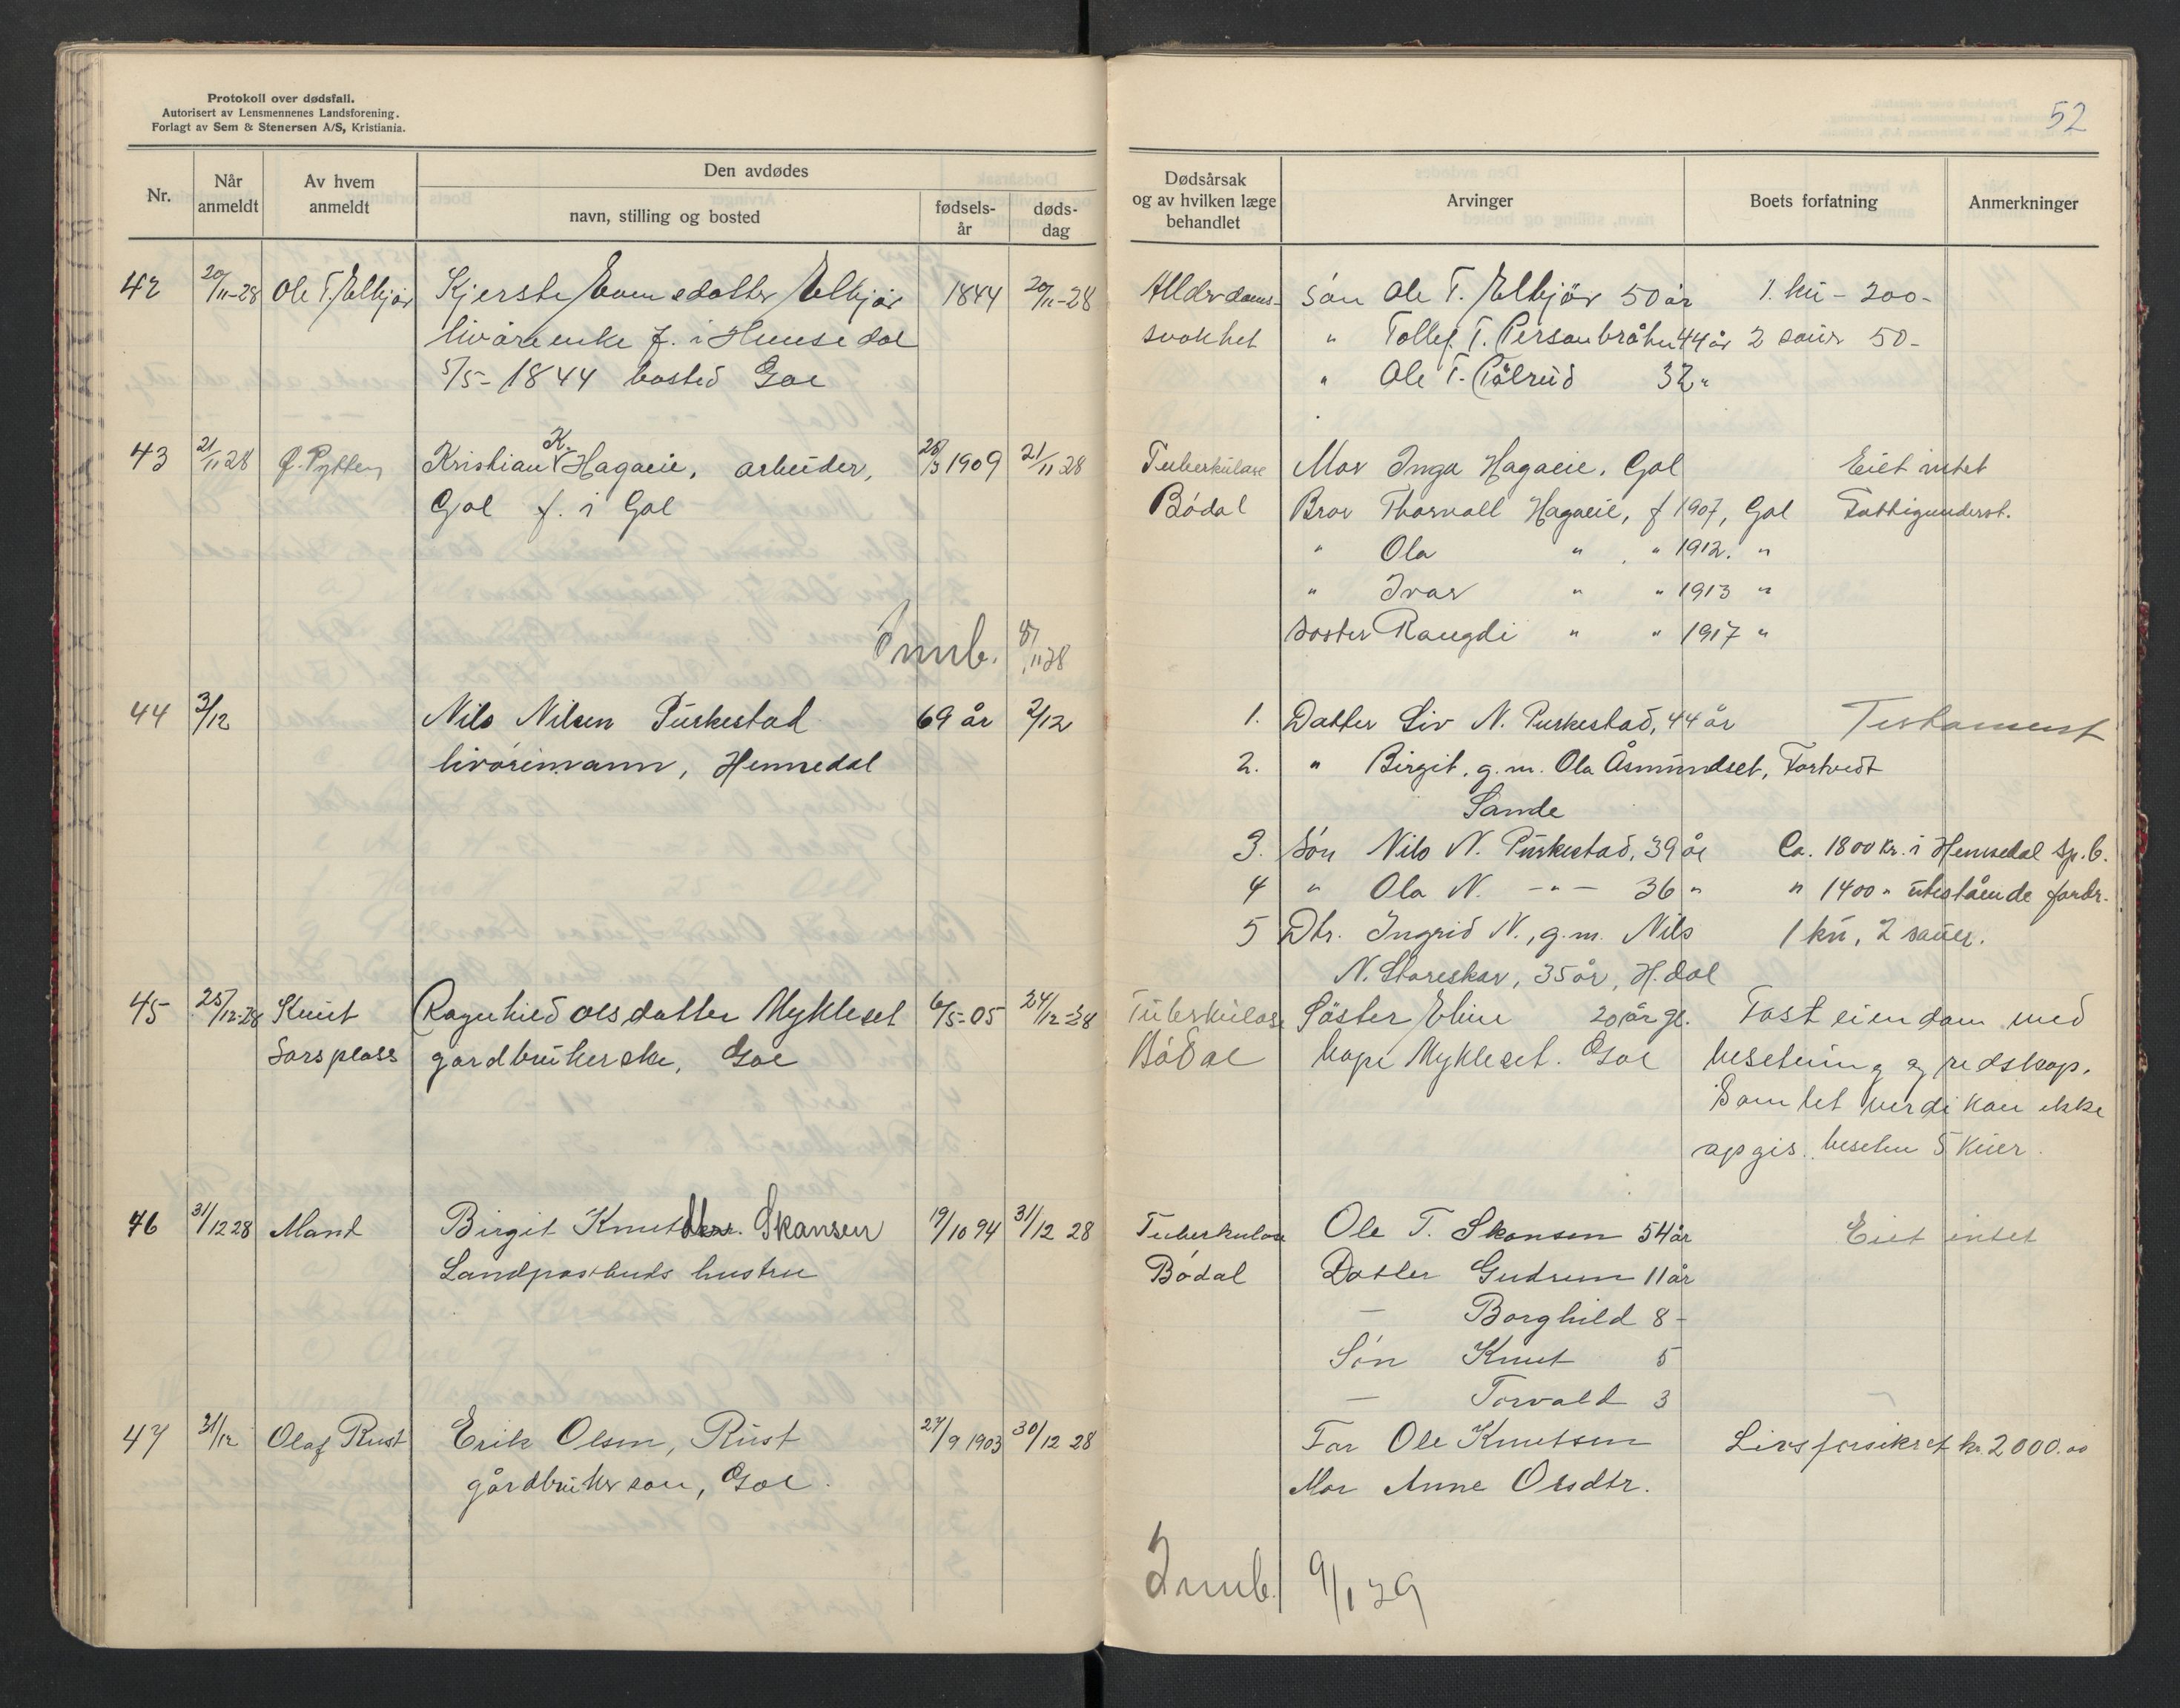 Protokoll over dødsfall.
Autorisert av Lensmennenes Landsforening.
Forlagt av Sem & Stenersen A/S, Kristiania.
52
Nr.
Når anmeldt
Av hvem anmeldt
Den avdødes
navn, stilling og bosted
fødsels-år
døds-dag
Dødsårsak og av hvilken læge behandlet
Arvinger
Boets forfatning
Anmerkninger
42 20/11-28 Ole T. Elkjær Kjersti Evensdatter Elkjær 1844 20/11-28 Alderdoms- Søn Ole T. Elkjær 50 år 1. ku - 200-
livøreenke f. i Hemsedal svakhet " Tollef T. Personbråten 44 år 2 sauer 50-
5/5-1844 bosted Gol " Ole T. Pålrud 32 "
43 21/11 28 Kristian K. Hagaeie, arbeider, 1909 21/11 28 Tuberkulose Mor Inga Hagaeie, Gol Eiet intet
Gol f. i Gol Bødal Bror Thorvall Hagaeie, f 1907, Gol Fattigunderst.
" Ola " " 1912. "
" Ivar " " 1913 "
søster Rangdi " " 1917 "
Innb. 8/11 28
44 3/12 Nils Nilsen Purkestad 69 år 2/12 1. Datter Liv N. Purkestad, 44 år Testament
livørimann, Hemsedal 2. " Birgit, g.m. Ola Åsmundset, Tortvedt
Sande
3. Søn Nils N. Purkestad, 39 år Ca. 1800 kr. i Hemsedal Sp.b.
4 " Ola N. -"- 36 " " 1400 " utestående fordr.
5 Dtr. Ingrid N., g.m. Nils 1 ku, 2 sauer.
N. Storeskar, 35 år, H.dal
45 25/12-28 Knut Ragnhild Olsdatter Mykleset 6/5-05 24/12-28 Tuberkulose Søster Eline 20 år gl. Fast eiendom med
Sorsplass gardbrukerske, Gol Bødal Mykleset. Gol besetning og redskap.
Samlet verdi kan ikke
opgis. besetn 5 kuer.
46 31/12 28 Mand Birgit Knutsdtr. Skansen 19/10 94 31/12 28 Tuberkulose Ole T. Skansen 54 år Eiet intet
Landpostbuds hustru Bødal Datter Gudrun 11 år
— Borghild 8 -
Søn Knut 5
— Torvald 3
47 31/12 Olaf Rust Erik Olsen, Rust 27/9 1903 30/12 28 Far Ole Knutsen Livsforsikret kr. 2000.00
gårdbrukersøn, Gol. Mor Anne Olsdtr.
Innb. 9/1 29